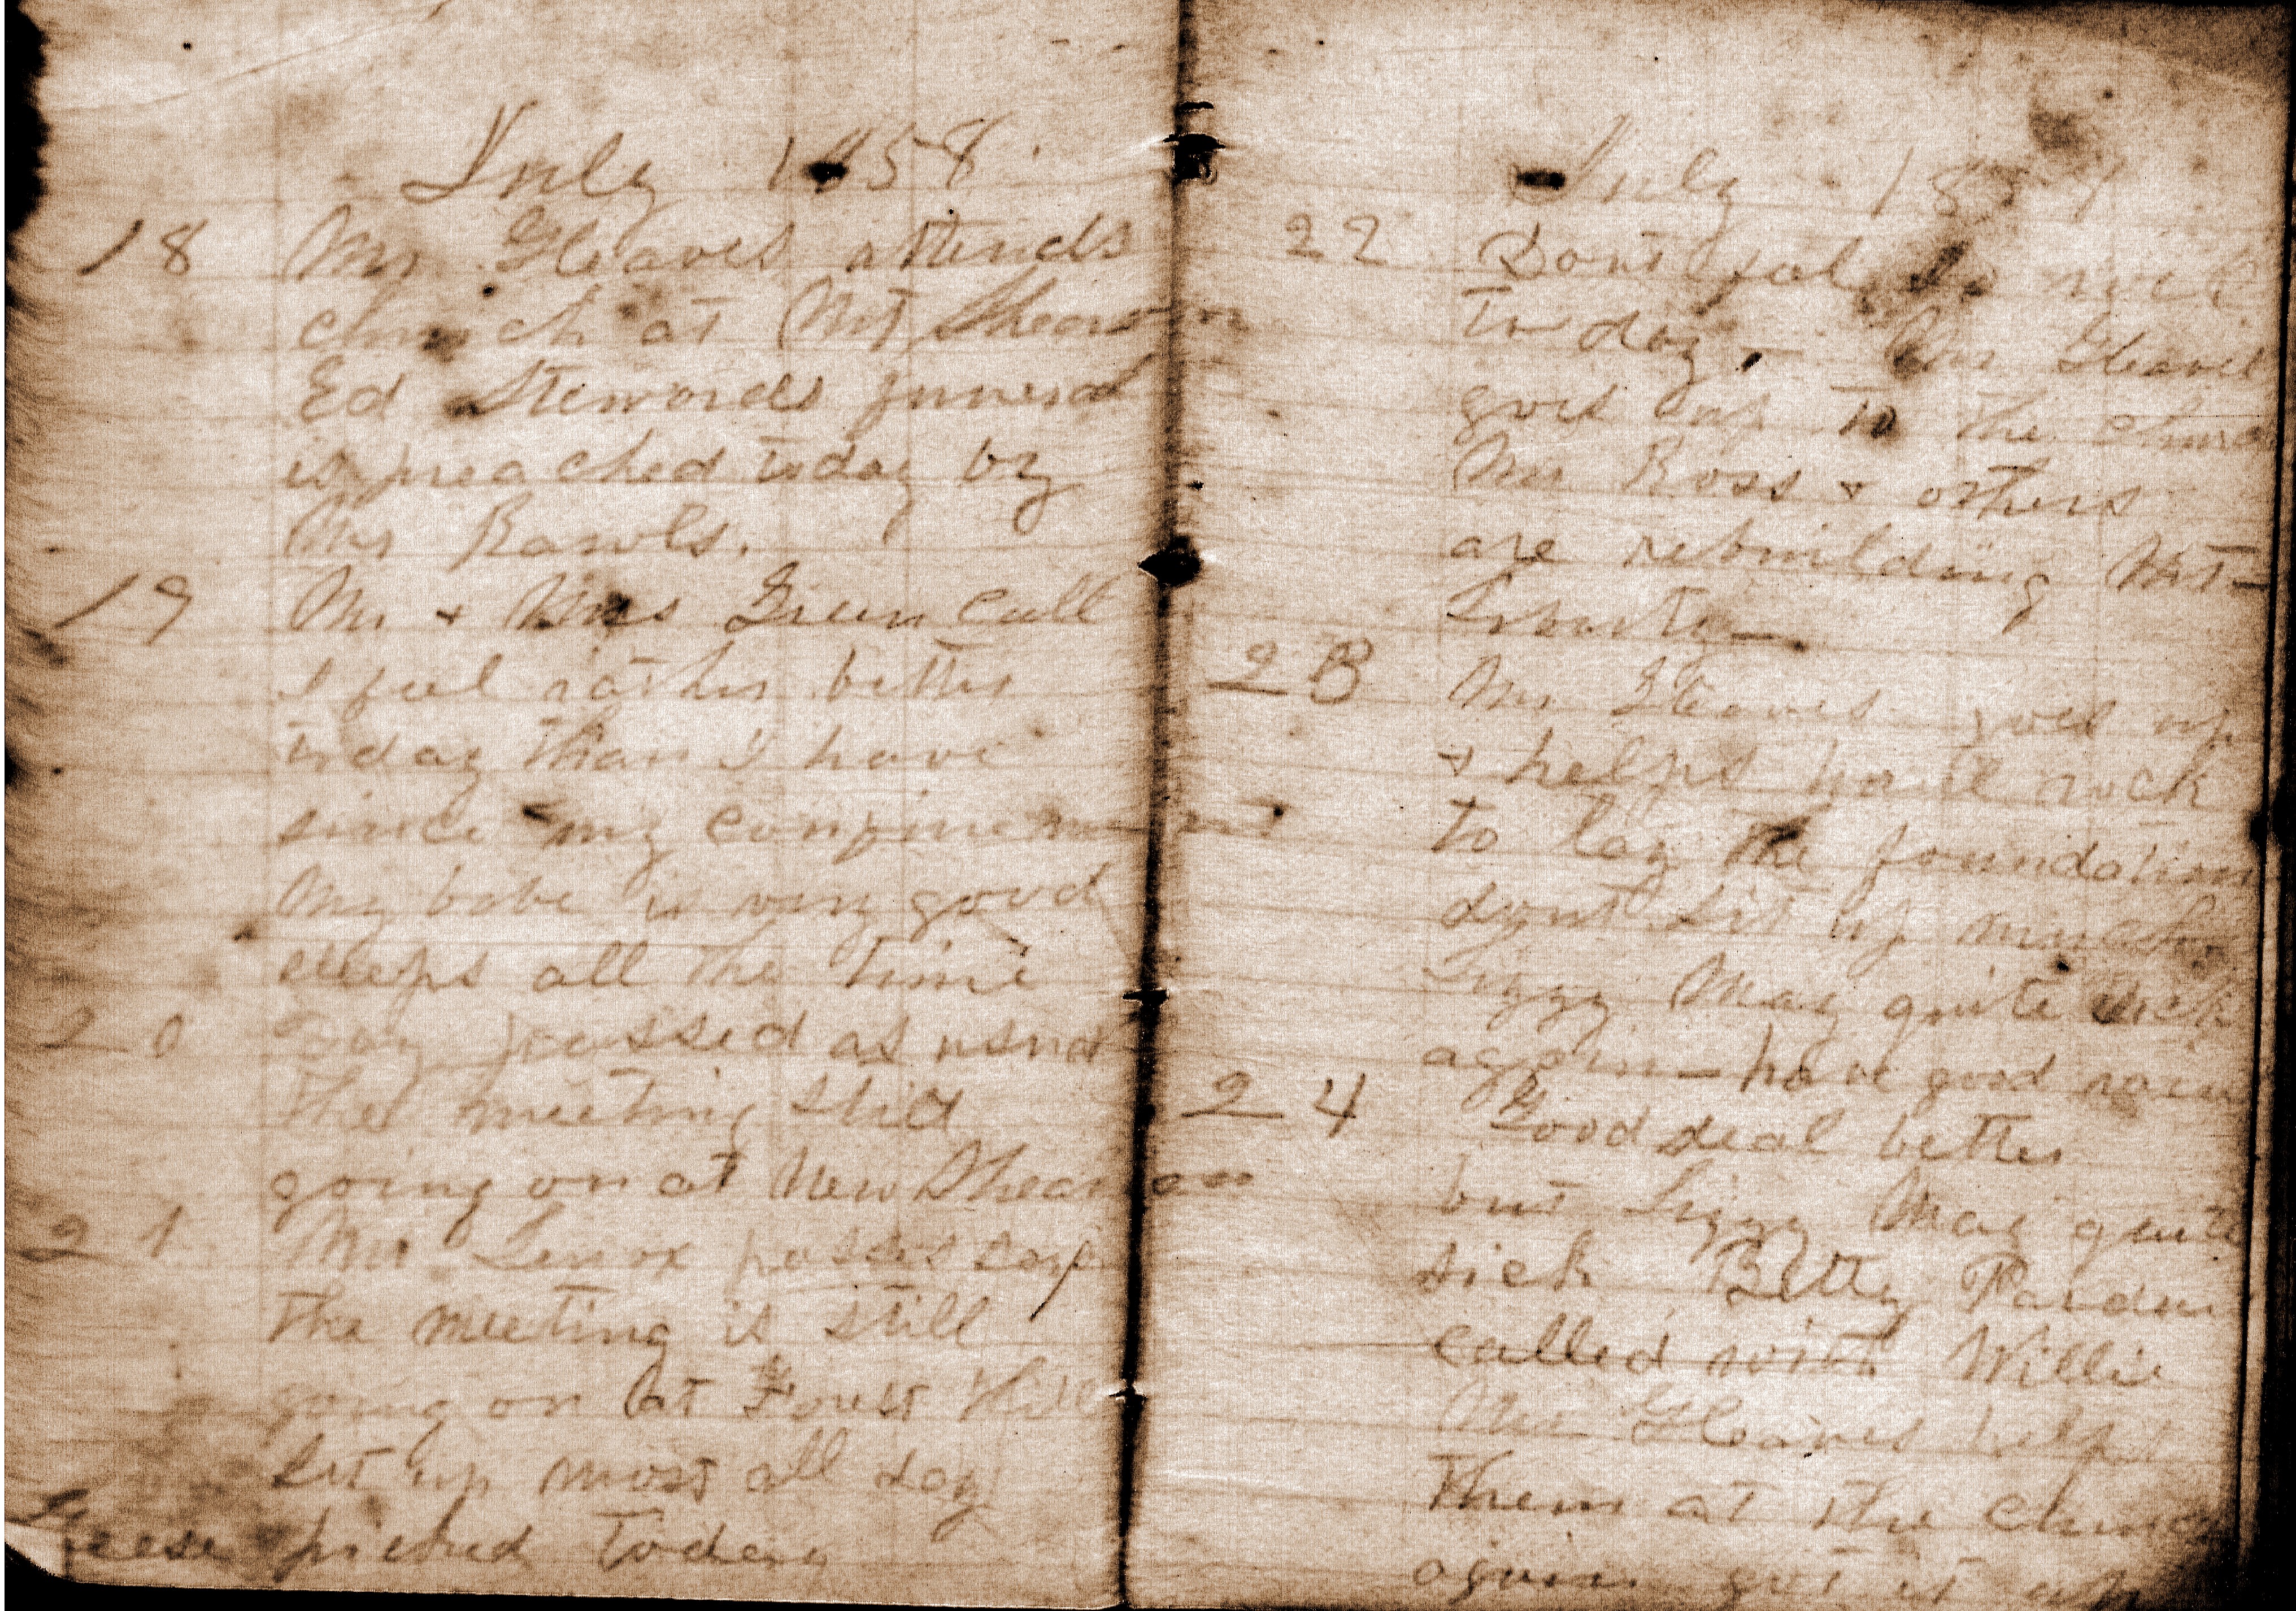 July 1858
18 Mr Gleaves attends
church at Mt Shearon
Ed Stewards funeral
is preached today by
Mr Rawls.
19 Mr + Mrs Green call
I feel rather better
today than I have
since my confinement
My babe is very good
sleeps all the time
20 Day passed as usual
The meeting still
going on at New Shearon
21 Mr Lenox passes
the meeting is still
going on at Forest Hill
Set up most all day
Geese picked today
July 185
22 Dont feel so well
to day, Mr Gleaves
goes up to the church
Mr Ross + others
are rebuilding Mt-
23 Mr Gleaves goes up
+ helps haul rock
to lay the foundation
dont sit up much
Lizzy May quite sick
again - have good rain
24 Good deal better
but Lizzy May quite
sick Betty Pardue
called with Willie
Mr Gleaves helps
them at the church
again get it up